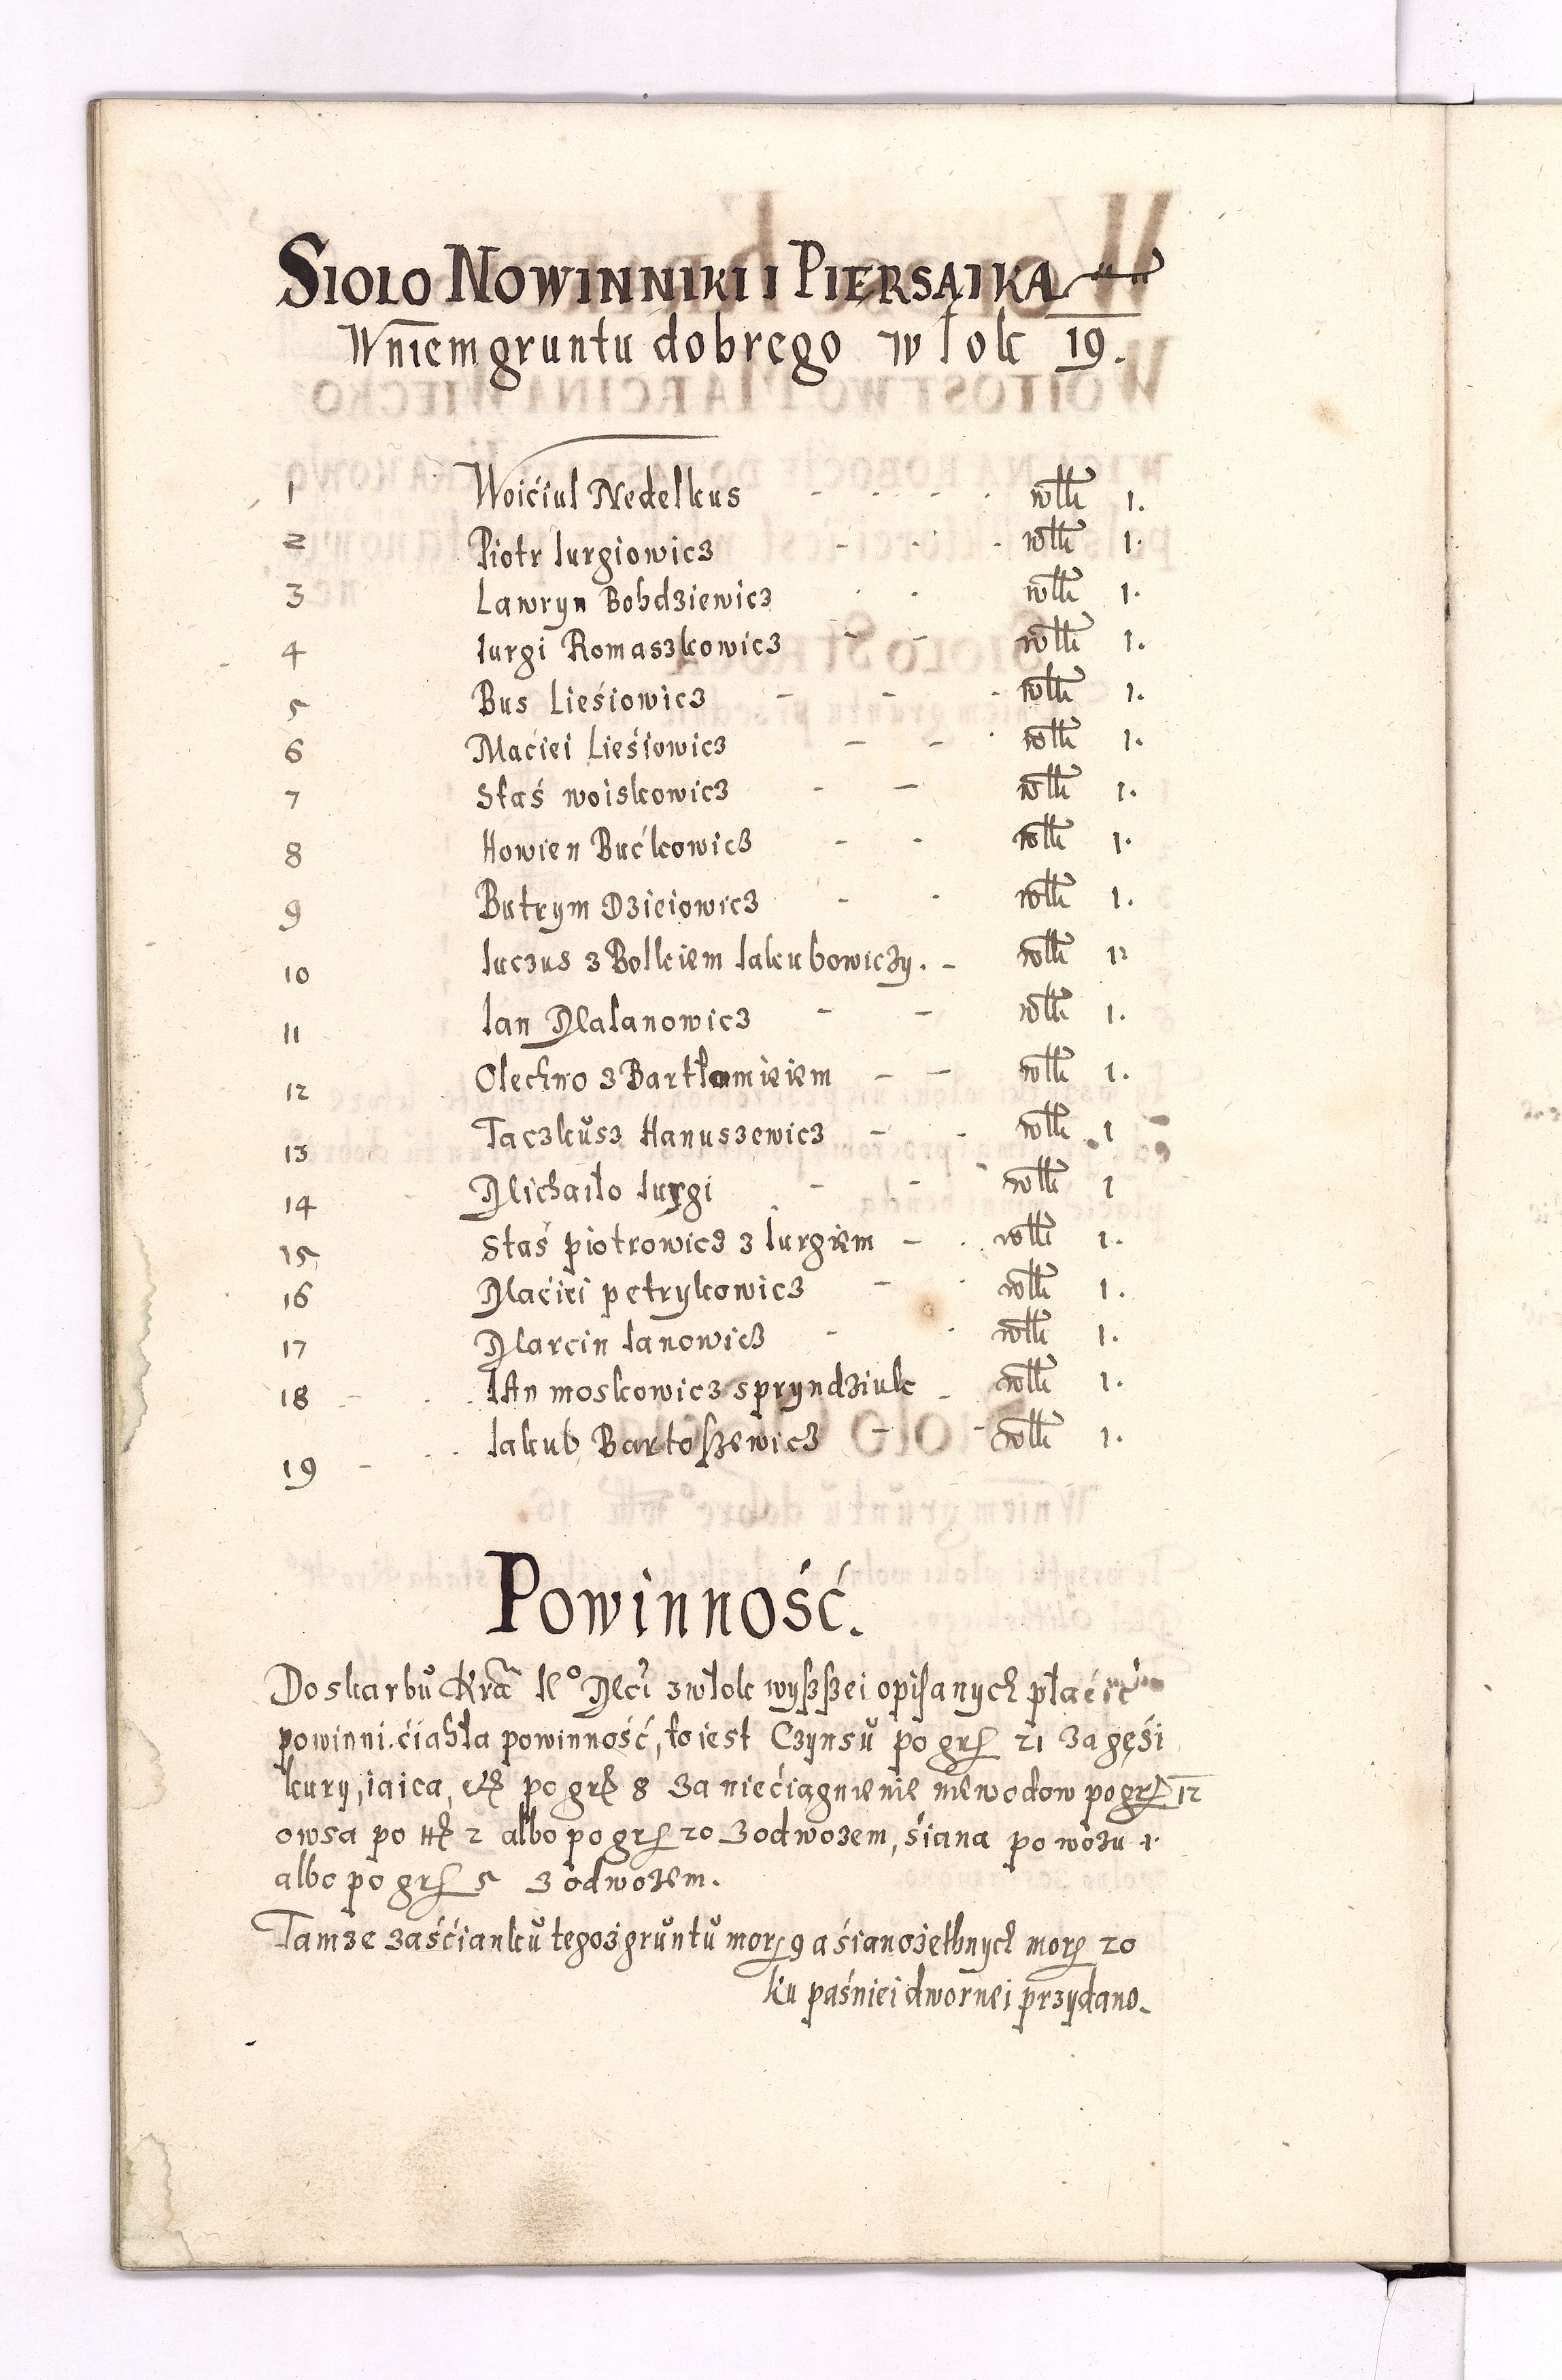 SIOLO NOWINNIKI I PIERSAIKA
W niem gruntu dobrego włok 19.
1 Woiciul Nedelkus - - - - włk 1.
2 Piotr Iurgiowicz - - - - włk 1.
3 Lawryn Bohdziewicz - - włk 1.
4 Iurgi Romaszkowicz - - włk 1.
5 Bus Lieśiowicz - - - włk 1.
6 Maciei Lieśiowicz - - - włk 1.
7 Staś woiskowicz - - włk 1.
8 Howien Bućkowicz - - włk 1.
9 Butrym Dzieiowicz - - włk 1.
10 Iuczus z Bolkiem Iakubowiczy. - włk 12
11 Ian Malanowicz - - włk 1.
12 Olechno z Bartłomieiem - - włk 1.
13 Taczkusz Hanuszewicz - - włk 1
14 Michaiło Iurgi - - - włk 1
15 Staś piotrowicz z Iurgiem - - włk 1.
16 Maciei petrykowicz - - włk 1.
17 Marcin Ianowicz - - włk 1.
18 IAn moskowicz spryndziuk - włk 1.
19 Iakub Bartoszewicz - - włk 1.
POWINNOŚĆ.
Do skarbu Kra Ko Mci z włok wyszszei opisanych płacić
powinni ciahła powinność, to iest Czynsu po grs 21 Za gęśi
kury, iaica, etc po grs 8 Za niećiągnienie niewodow po grs 12
owsa po 2 albo po grs 20 Z odwozem, śiana po wozu 1
albo po grs 5 Z odwozem.
Tamze zaściankŭ tegoz grŭntŭ morg 9 a śianożethnych morg 20
ku paśniei dwornei przydano.